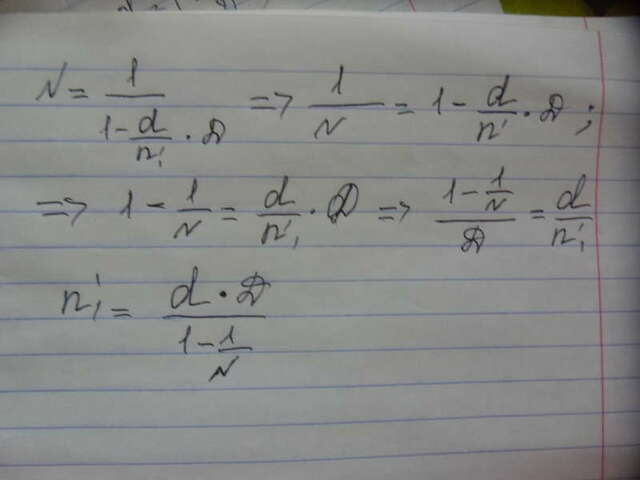 N = 1/(1 - d/n'₁ · D) => 1/N = 1 - d/n'₁ · D ;
=> 1 - 1/N = d/n'₁ · D => (1 - 1/N)/D = d/n'₁
n'₁ = (d · D)/(1 - 1/N)